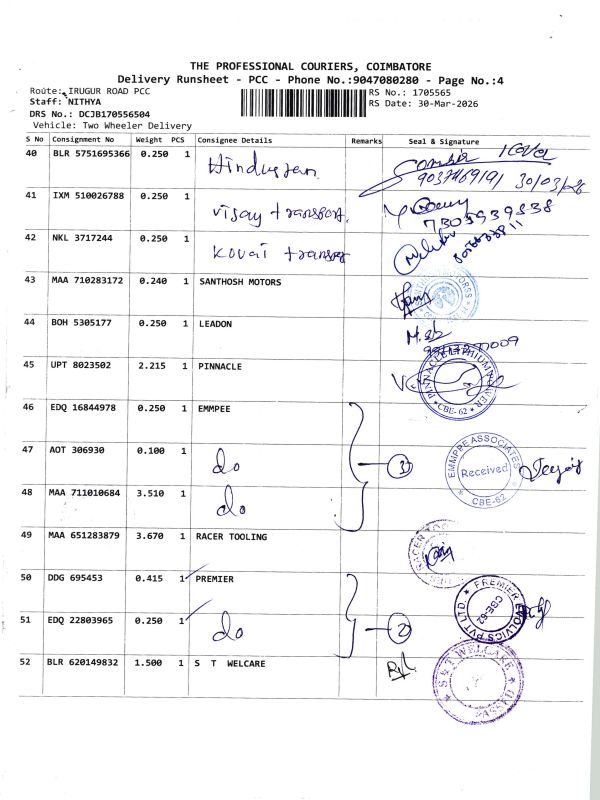 THE PROFESSIONAL COURIERS, COIMBATORE
Delivery Runsheet - PCC - Phone No.:9047080280 - Page No.:4
Route: IRUGUR ROAD PCC
RS No.: 1705565
Staff: NITHYA
RS Date: 30-Mar-2026
DRS No.: DCJB170556504
Vehicle: Two Wheeler Delivery
S No Consignment No Weight PCS Consignee Details Remarks Seal & Signature
40 BLR 5751695366 0.250 1 Hindustan
30/03/26
41 IXM 510026788 0.250 1 vijay transport.
7305939838
42 NKL 3717244 0.250 1 Kovai transport
43 MAA 710283172 0.240 1 SANTHOSH MOTORS
44 BOH 5305177 0.250 1 LEADON
45 UPT 8023502 2.215 1 PINNACLE
PINNACLE LITHIUM POWER CBE-62
46 EDQ 16844978 0.250 1 EMMPEE
47 AOT 306930 0.100 1 do 3
EMMPPE ASSOCIATES Received CBE-62
48 MAA 711010684 3.510 1 do
49 MAA 651283879 3.670 1 RACER TOOLING
RACER TOO
50 DDG 695453 0.415 1 PREMIER
PREMIER EVOLVICS PVT LTD CBE-62
51 EDQ 22803965 0.250 1 do 2
52 BLR 620149832 1.500 1 S T WELCARE
S&T WELCARE